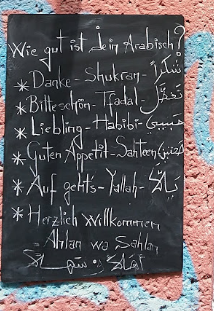 Wie gut ist dein Arabisch?
* Danke - Shukran - شكراً
* Bitteschön - Tfadal تفضل
* Liebling - Habibi - حبيبي
* Guten Appetit - Sahteen صحتين
* Auf geht's - Yallah - يلا
* Herzlich Willkommen
Ahlan wa Sahlan
أهلا و سهلا